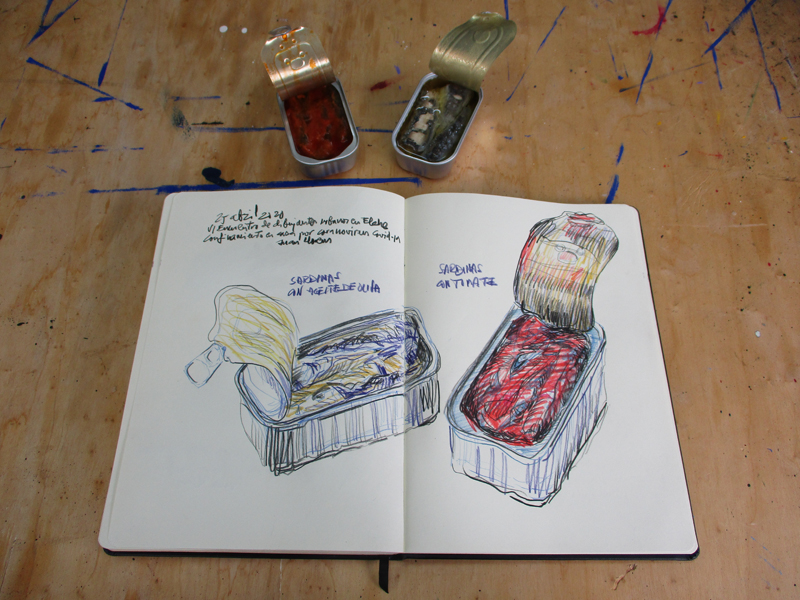 25 abril 2020
VI Encuentro de dibujantes urbanos en Elche
Confinamiento en casa por coronavirus Covid-19
SARDINAS
CON ACEITE DE OLIVA
SARDINAS
CON TOMATE